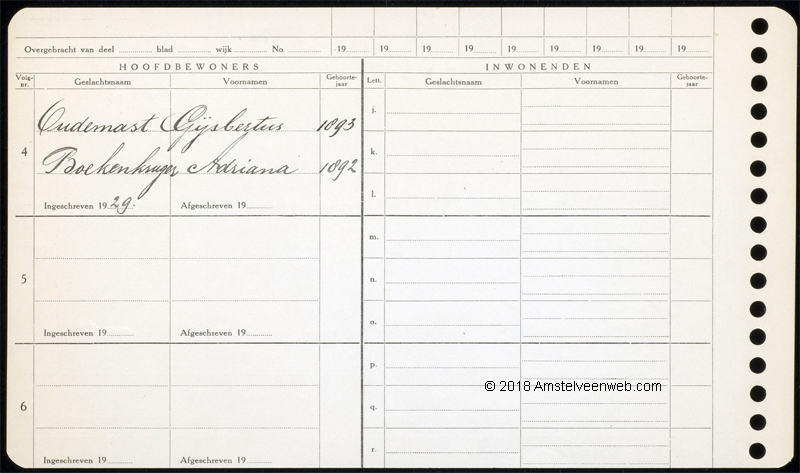 Overgebracht van deel ........ blad ........ wijk ........ No. ........ 19 19 19 19 19 19 19 19 19
HOOFDBEWONERS INWONENDEN
Volg-nr. Geslachtsnaam Voornamen Geboorte-jaar Lett. Geslachtsnaam Voornamen Geboorte-jaar
j.
Oudemast Gijsbertus 1893
4 k.
Boekenkruger Adriana 1892
l.
Ingeschreven 1929. Afgeschreven 19
m.
5 n.
o.
Ingeschreven 19 Afgeschreven 19
p.
© 2018 Amstelveenweb.com
6 q.
r.
Ingeschreven 19 Afgeschreven 19